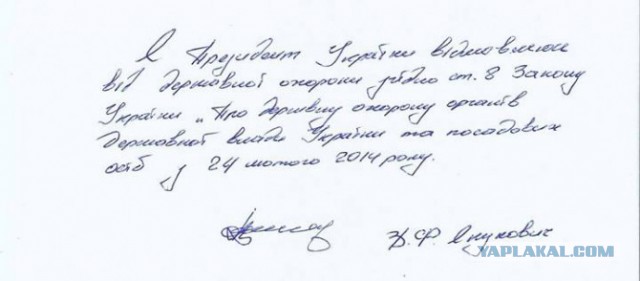 Я Президент України відмовляюся
від державної охорони згідно ст. 8 Закону
України „Про державну охорону органів
державної влади України та посадових
осіб з 24 лютого 2014 року.
В.Ф. Янукович
YAPLAKAL.COM